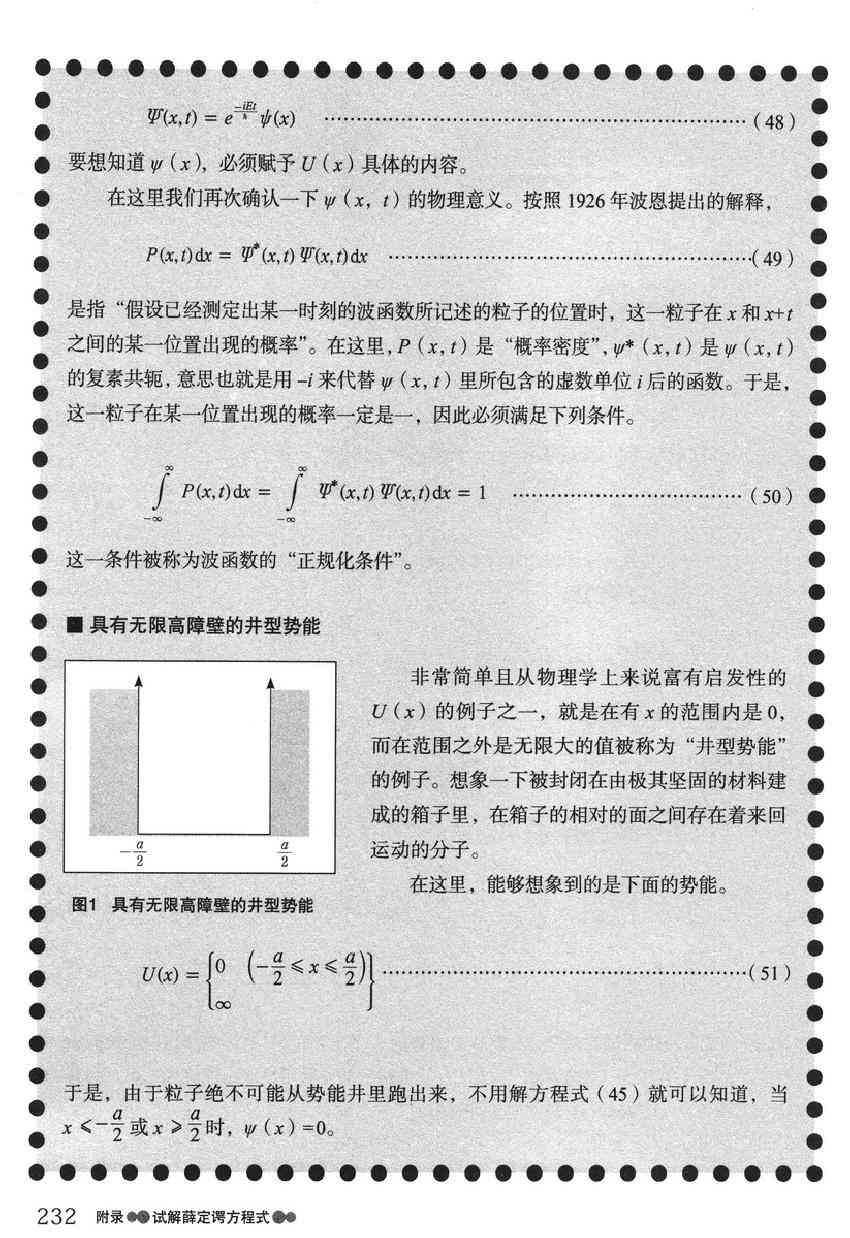 Ψ(x,t) = e^{-iEt/ħ} ψ(x) ……………………………………………… (48)
要想知道 ψ (x), 必须赋予 U (x) 具体的内容。
在这里我们再次确认一下 ψ (x, t) 的物理意义。按照 1926 年波恩提出的解释,
P(x,t)dx = Ψ*(x,t)Ψ(x,t)dx ……………………………………… (49)
是指“假设已经测定出某一时刻的波函数所记述的粒子的位置时, 这一粒子在 x 和 x+t
之间的某一位置出现的概率”。在这里, P (x, t) 是“概率密度”, ψ* (x, t) 是 ψ (x, t)
的复素共轭, 意思也就是用 -i 来代替 ψ (x, t) 里所包含的虚数单位 i 后的函数。于是,
这一粒子在某一位置出现的概率一定是一, 因此必须满足下列条件。
∫_{-∞}^{∞} P(x,t)dx = ∫_{-∞}^{∞} Ψ*(x,t) Ψ(x,t)dx = 1 ……………………… (50)
这一条件被称为波函数的“正规化条件”。
■ 具有无限高障壁的井型势能
-a/2 a/2
图1 具有无限高障壁的井型势能
非常简单且从物理学上来说富有启发性的
U (x) 的例子之一, 就是在有 x 的范围内是 0,
而在范围之外是无限大的值被称为“井型势能”
的例子。想象一下被封闭在由极其坚固的材料建
成的箱子里, 在箱子的相对的面之间存在着来回
运动的分子。
在这里, 能够想象到的是下面的势能。
U(x) = {0 (-a/2 ≤ x ≤ a/2)} ……………………………………… (51)
∞
于是, 由于粒子绝不可能从势能井里跑出来, 不用解方程式 (45) 就可以知道, 当
x ≤ -a/2 或 x ≥ a/2 时, ψ (x) =0。
232 附录 试解薛定谔方程式